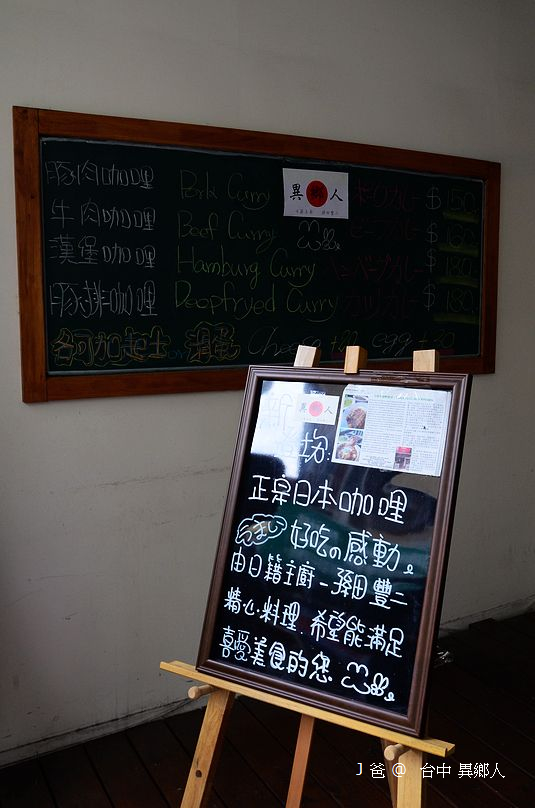 豚肉咖哩 Pork Curry ポークカレー $150
異鄉人
牛肉咖哩 Beef Curry ビーフ $160
漢堡咖哩 Hamburg Curry ハンバーグカレー $180
豚排咖哩 Deepfryed Curry カツカレー $180
各可加起士 or 溫蛋 Cheese egg +20
新
異鄉人
登場:
正宗日本咖哩
好吃の感動。
由日籍主廚-孫田豐二
精心料理.希望能滿足
喜愛美食的您
J 爸 @ 台中 異鄉人